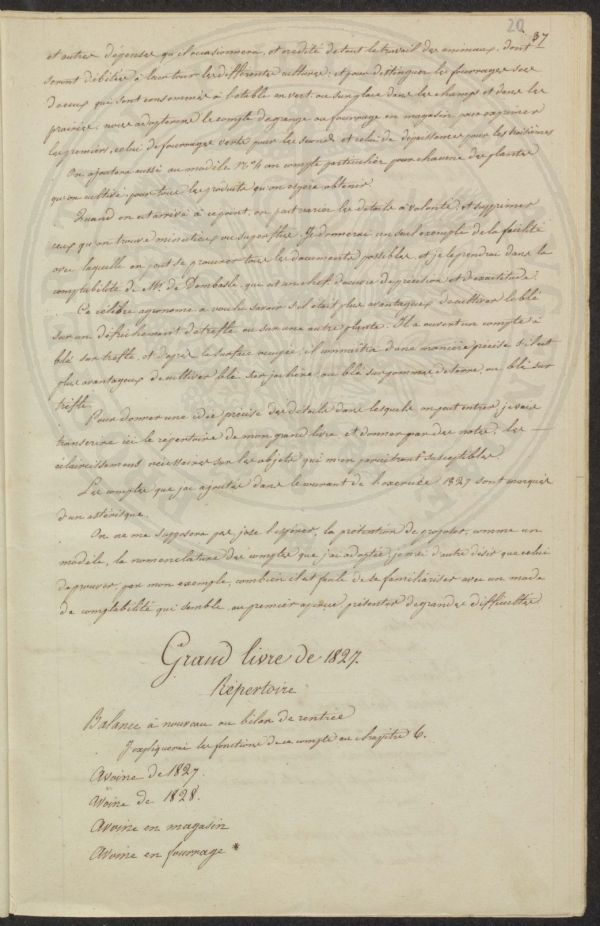 20 37
et autres dépenses qu'il occasionnera, et crédité de tout le travail des animaux, dont
seront débitées à leur tour les différentes cultures: et pour distinguer les fourrages secs
de ceux qui sont consommés à l'étable en vert, ou sur place dans les champs et dans les
prairies: nous adopterons le compte de grange ou fourrage en magasin pour exprimer
les premiers, celui de fourrages verts pour les seconds et celui de dépaissance pour les troisièmes
On ajoutera aussi au modèle N.º 4 un compte particulier pour chacune des plantes
qu'on cultive, pour tous les produits qu'on espère obtenir.
Quand on est arrivé à ce point, on peut varier les détails à volonté: et supprimer
ceux qu'on trouve minutieux ou superflus. Je donnerai un seul exemple de la facilité
avec laquelle on peut se procurer tous les documents possibles, et je le prendrai dans la
comptabilité de Mr. de Dombasle, qui est un chef d'œuvre de précision et d'exactitude.
Ce célèbre agronome a voulu savoir s'il était plus avantageux de cultiver le blé
sur un défrichement de trèfle ou sur une autre plante. Il a ouvert un compte à
blé sur trèfle, et d'après la surface occupée, il connaîtra d'une manière précise s'il est
plus avantageux de cultiver blé sur jachère, ou blé sur pommes de terre, ou blé sur
trèfle.
Pour donner une idée précise des détails dans lesquels on peut entrer, je vais
transcrire ici le répertoire de mon grand livre et donner par des notes, les
éclaircissemens nécessaires sur les objets qui m'en paraîtront susceptibles
Les comptes que j'ai ajoutés dans le courant de l'exercice 1827 sont marqués
d'un astérisque.
On ne me supposera pas, j'ose l'espérer, la prétention de projeter, comme un
modèle, la nomenclature des comptes que j'ai adoptée, je n'ai d'autre désir que celui
de prouver par mon exemple, combien il est facile de se familiariser avec un mode
de comptabilité qui semble au premier aperçu présenter de grandes difficultés
Grand livre de 1827.
Répertoire
Balance à nouveau ou bilan de rentrée
J'expliquerai les fonctions de ce compte au chapitre 6.
Avoine de 1827.
Avoine de 1828.
Avoine en magasin
Avoine en fourrage *